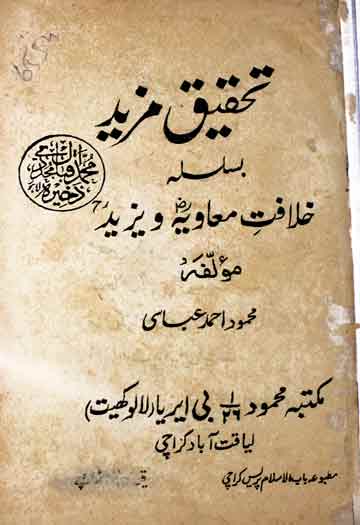 تحقیق مزید
بسلسلہ
خلافتِ معاویہؓ و یزیدؒ
مؤلفہ
محمود احمد عباسی
مکتبہ محمود ۱/۲۶ بی ایریا (لالوکھیت)
لیاقت آباد کراچی
مطبوعہ باب الاسلام پریس کراچی
محمد
ذخیرہ